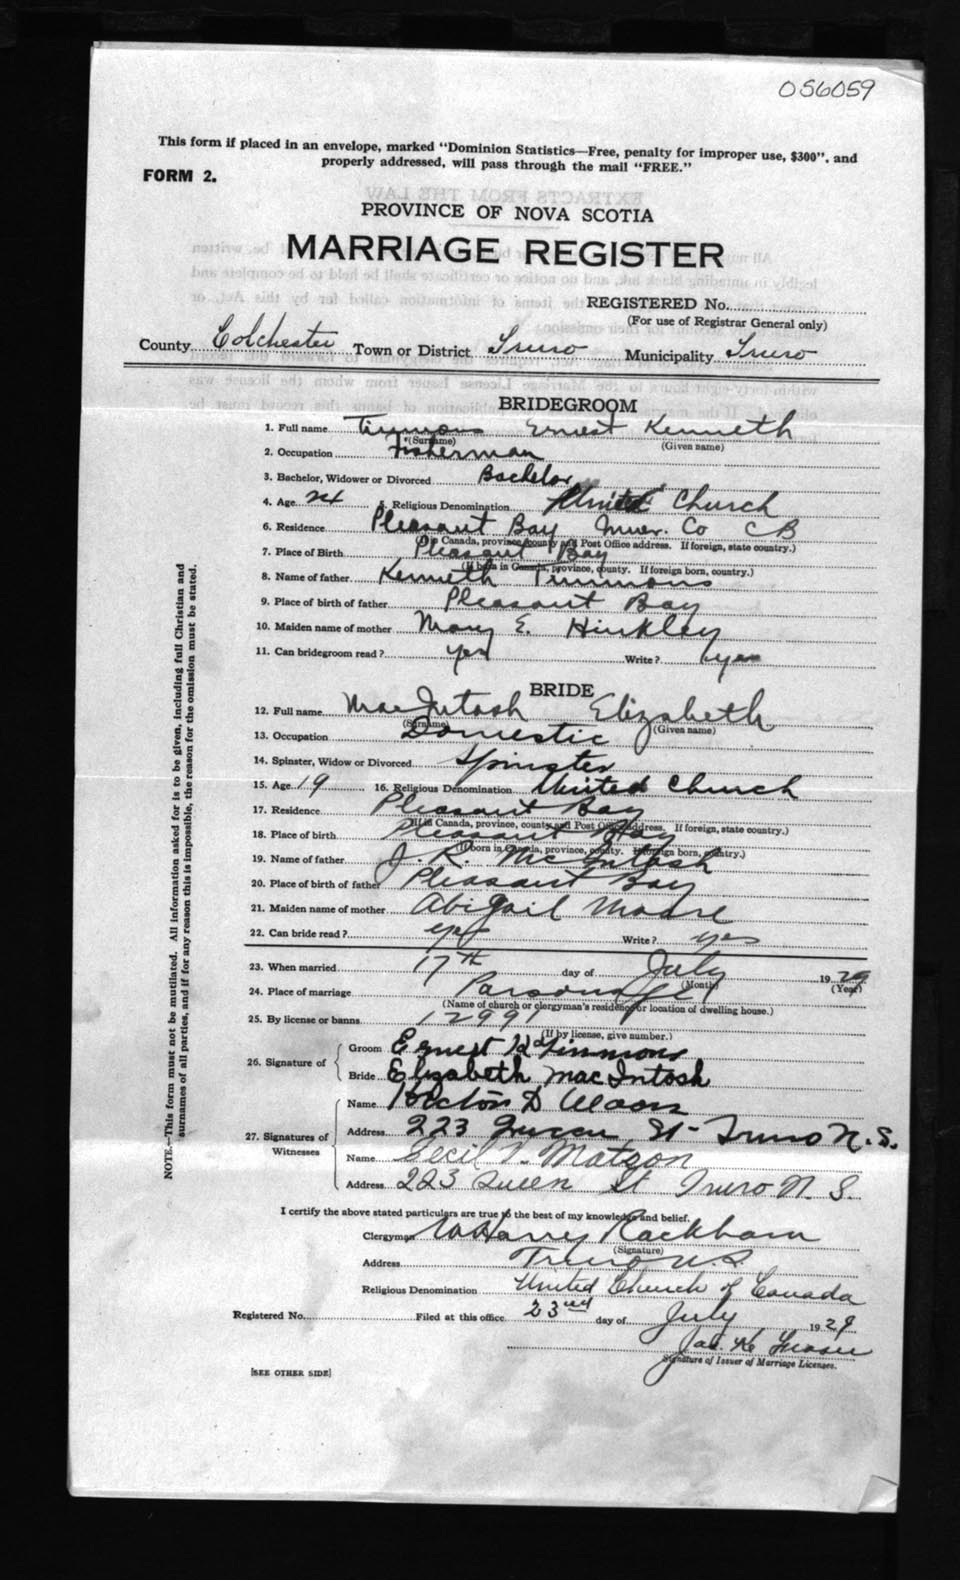 056059
This form if placed in an envelope, marked "Dominion Statistics—Free, penalty for improper use, $300", and
properly addressed, will pass through the mail "FREE."
FORM 2.
PROVINCE OF NOVA SCOTIA
MARRIAGE REGISTER
REGISTERED No.
(For use of Registrar General only)
County Colchester Town or District Truro Municipality Truro
BRIDEGROOM
1. Full name Timmons Ernest Kenneth
(Surname) (Given name)
2. Occupation Fisherman
3. Bachelor, Widower or Divorced Bachelor
4. Age 24 5. Religious Denomination United Church
6. Residence Pleasant Bay Inver. Co CB
(In Canada, province, county and Post Office address. If foreign, state country.)
7. Place of Birth Pleasant Bay
(If born in Canada, province, county. If foreign born, country.)
8. Name of father Kenneth Timmons
9. Place of birth of father Pleasant Bay
10. Maiden name of mother Mary E. Hinkley
11. Can bridegroom read? yes Write? yes
BRIDE
12. Full name MacIntosh Elizabeth
(Surname) (Given name)
13. Occupation Domestic
14. Spinster, Widow or Divorced Spinster
15. Age 19 16. Religious Denomination United Church
17. Residence Pleasant Bay
(If in Canada, province, county and Post Office address. If foreign, state country.)
18. Place of birth Pleasant Bay
(If born in Canada, province, county. If foreign born, country.)
19. Name of father J. R. McIntosh
20. Place of birth of father Pleasant Bay
21. Maiden name of mother Abigail Moore
22. Can bride read? yes Write? yes
23. When married 17th day of July 1929
(Month) (Year)
24. Place of marriage Parsonage
(Name of church or clergyman's residence or location of dwelling house.)
25. By license or banns 12991
(If by license, give number.)
26. Signature of Groom Ernest Kd Timmons
Bride Elizabeth MacIntosh
27. Signatures of Witnesses
Name D
Address 223 Queen St - Truro N.S.
Name Cecil Matson
Address 223 Queen St Truro N. S.
I certify the above stated particulars are true to the best of my knowledge and belief.
Clergyman W Harry Rackham
(Signature)
Address Truro N.S.
Religious Denomination United Church of Canada
Registered No. Filed at this office 23rd day of July 1929
Jas. K Fraser
Signature of Issuer of Marriage Licenses.
[SEE OTHER SIDE]
NOTE.—This form must not be mutilated. All information asked for is to be given, including full Christian and
surnames of all parties, and if for any reason this is impossible, the reason for the omission must be stated.